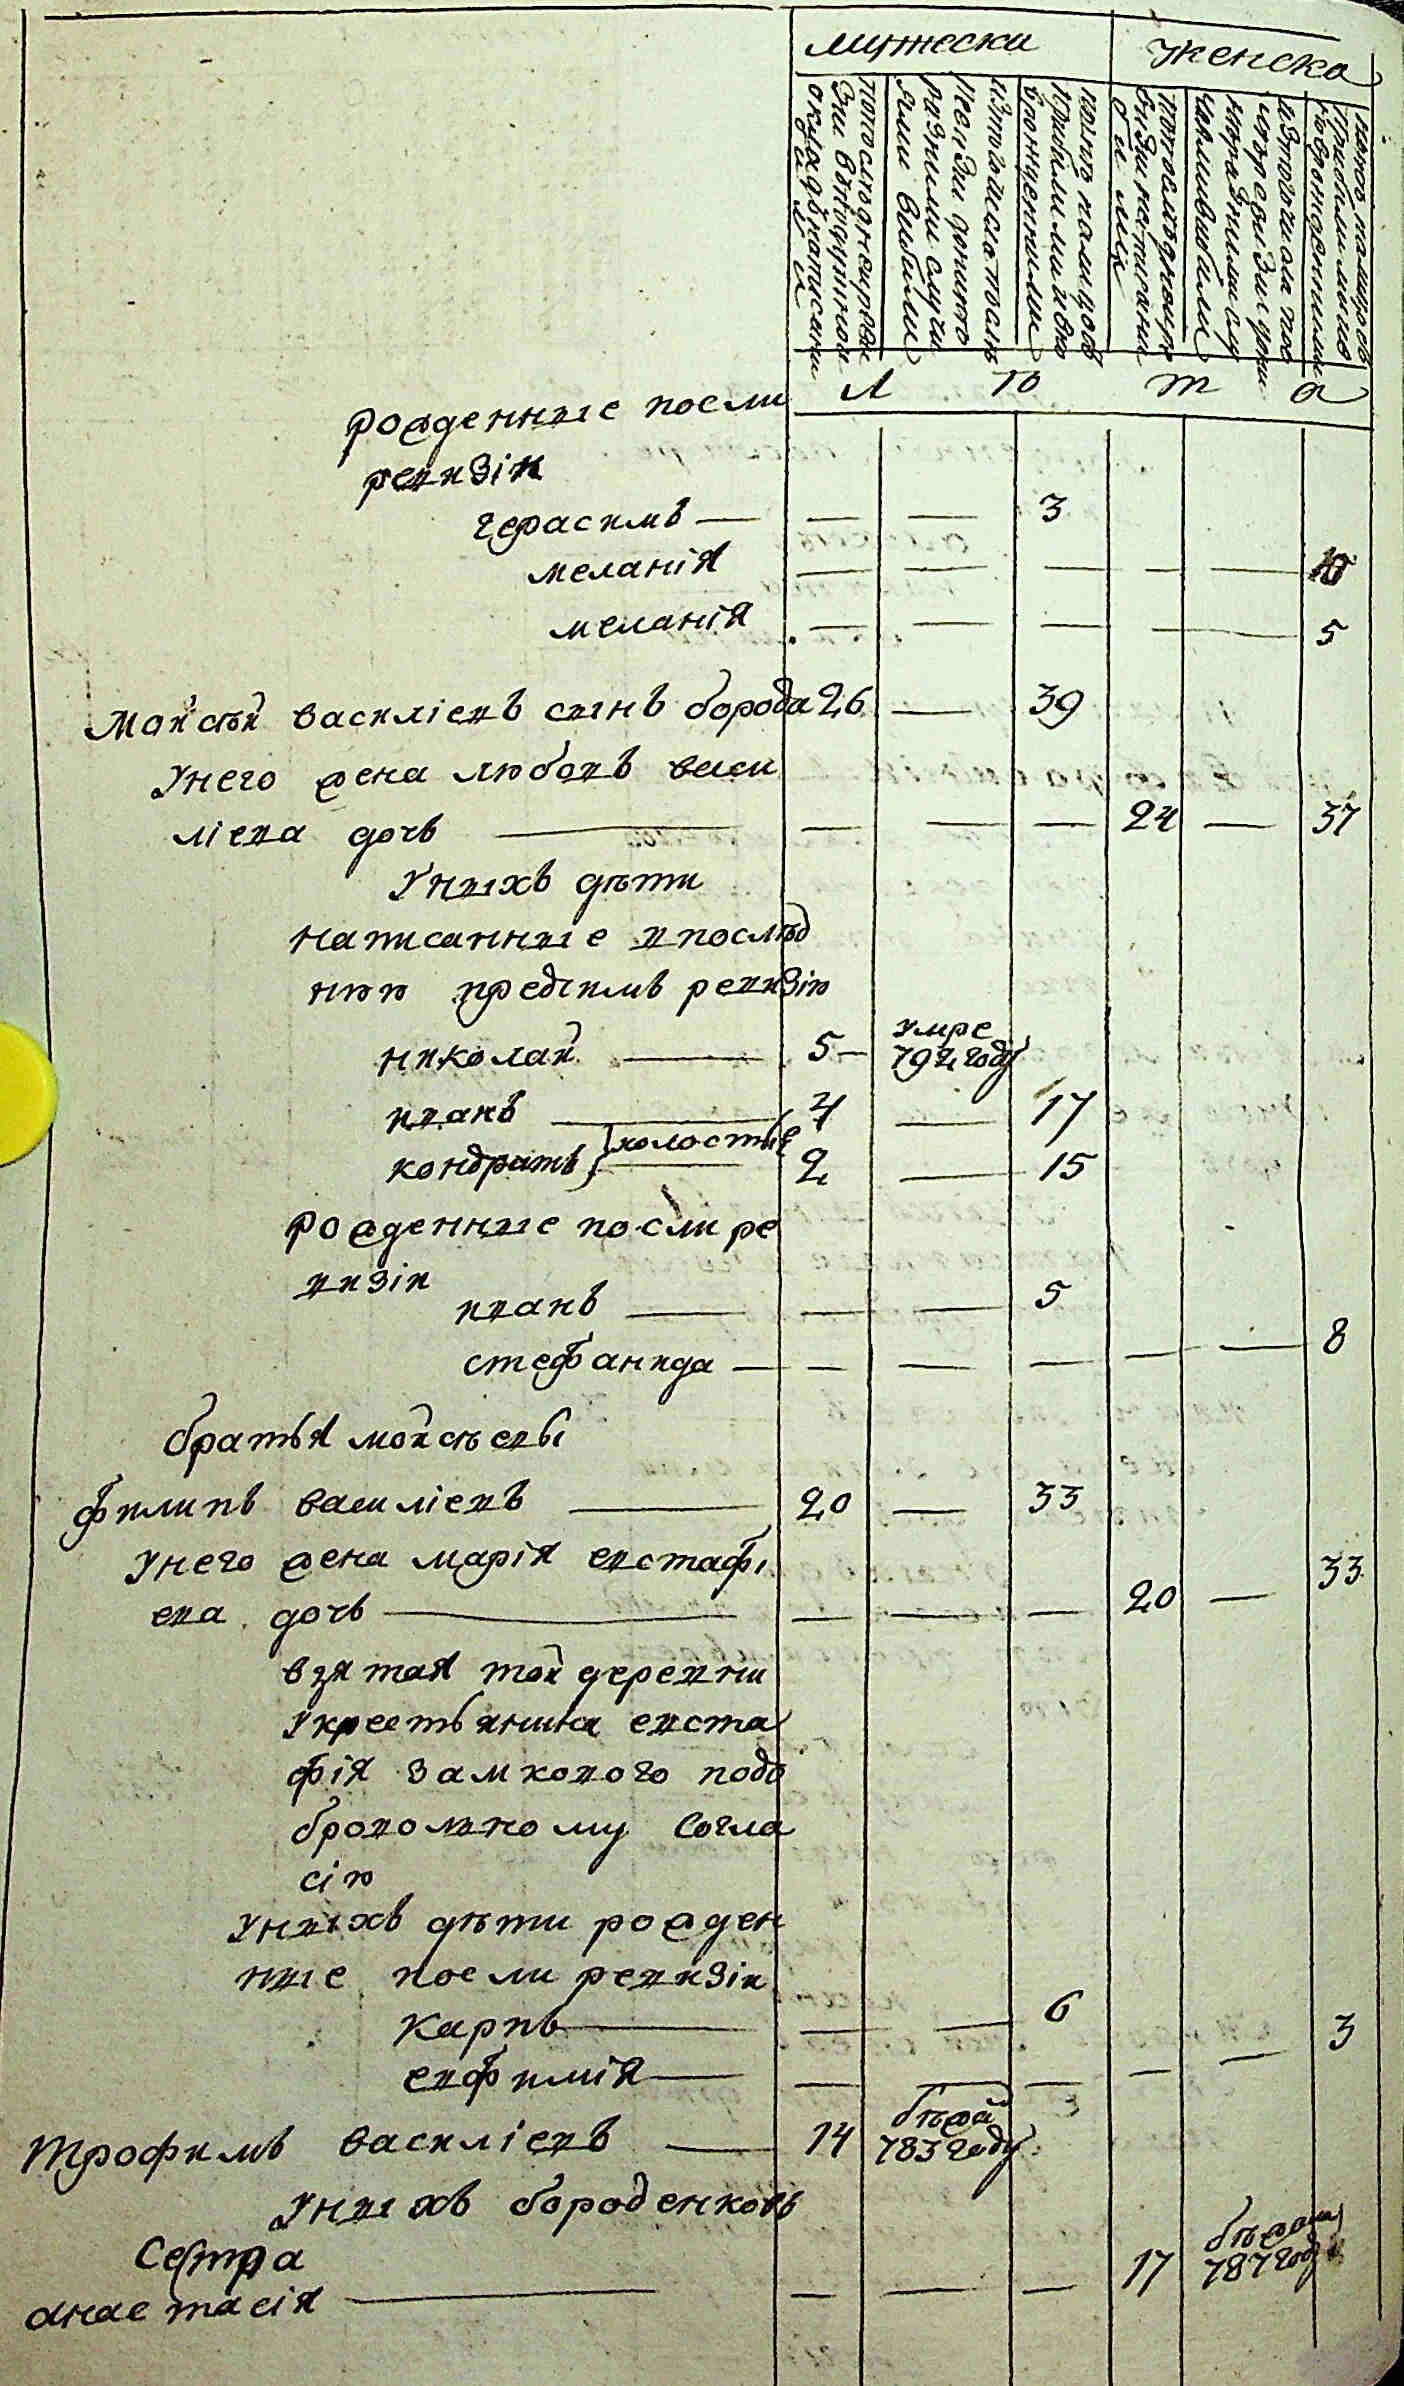 мужеска женска
по последней реви
зии в подушной
оклад написани
из того числа после
ревизии до ныто
разними случа
ями выбили
ныне налицо с
прибылими и вно
врожденними
по последней ре
визии написани
были
л ѣ т а
рожденные посли
ревизіи
герасимъ 3
меланія 10
меланія 5
Мойсѣй василіевъ сынъ борода 26 39
Унего жена любовъ васи
ліева дочъ 24 37
Унихъ дѣти
написанные впослѣд
нюю предсимъ ревизію
николай 5 умре 792 году
иванъ 4 17
кондратъ } холостые 2 15
рожденные посли ре
визіи
иванъ 5
стефанида 8
братья мойсѣевы
филипъ василіевъ 20 33
Унего жена марія евстафі
ева дочъ 20 33
взятая той деревни
Укрестьянина евста
фія замкового подо
бровольному согла
сію
Унихъ дѣти рожден
ные посли ревизіи
карпъ 6
евфимія 3
трофимъ василіевъ 14 бѣжа 783 году
Унихъ бороденковъ
Сестра
анастасія 17 бѣжала 787 году